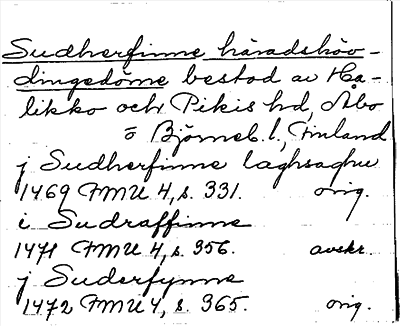 Sudherfinne häradshöv-
dingedöme bestod av Ha-
likko och Pikis hd, Åbo
o Björneb. l., Finland
j Sudherfinne laghsaghu
1469 FMU 4, s. 331. orig.
i Sudraffinne
1471 FMU 4, s. 356. avskr.
j Suderfynne
1472 FMU 4, s. 365. orig.